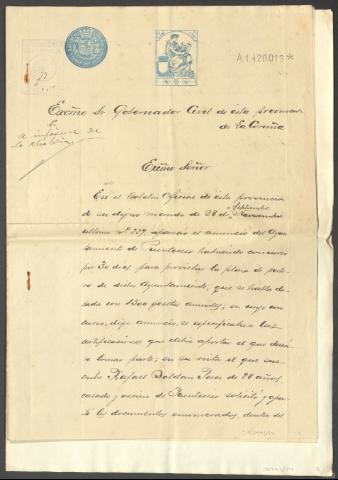 A1420013*
Excmo Sr Gobernador Civil de esta provincia
de La Coruña
a informe de
Excmo Señor
En el Boletin Oficial de esta provincia
de su digno mando de 28 de Septiembre
último Nº 239, aparece el anuncio del Ayun
tamiento de Puenteceso habriendo concurso
por 30 dias para proveer la plaza de
de dicho Ayuntamiento, que se halla do
tada con 1500 pesetas anuales; en cuyo con
curso, dijo anuncio, se especificaban las
certificaciones que debia aportar el que desea
se tomar parte; en su vista el que sus
cribe Rafael Baldomir de 28 años,
casado y vecino de Puenteceso solicitó y apor
tó los documentos enumerados, dentro del